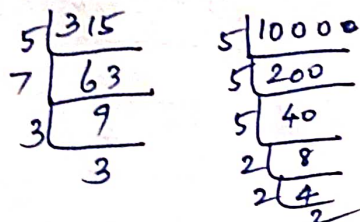 5 315
7 63
3 9
3
5 10000
5 200
5 40
2 8
2 4
2